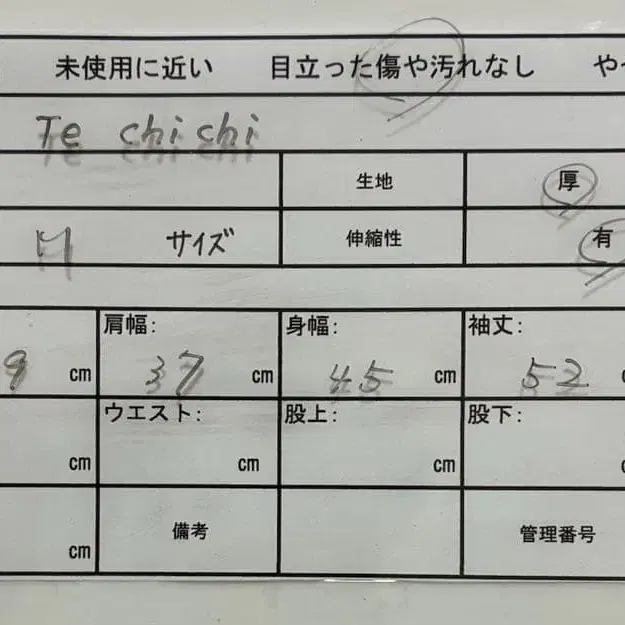 未使用に近い 目立った傷や汚れなし や
Te chichi
生地 厚
M サイズ 伸縮性 有
肩幅: 身幅: 袖丈:
9 cm 37 cm 45 cm 52
ウエスト: 股上: 股下:
cm cm cm
cm 備考 管理番号